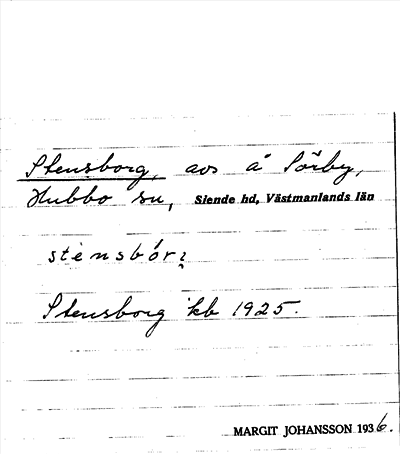 Stensborg, avs å Sörby,
Hubbo sn, Siende hd, Västmanlands län
Stensborg kb 1925.
MARGIT JOHANSSON 1936.